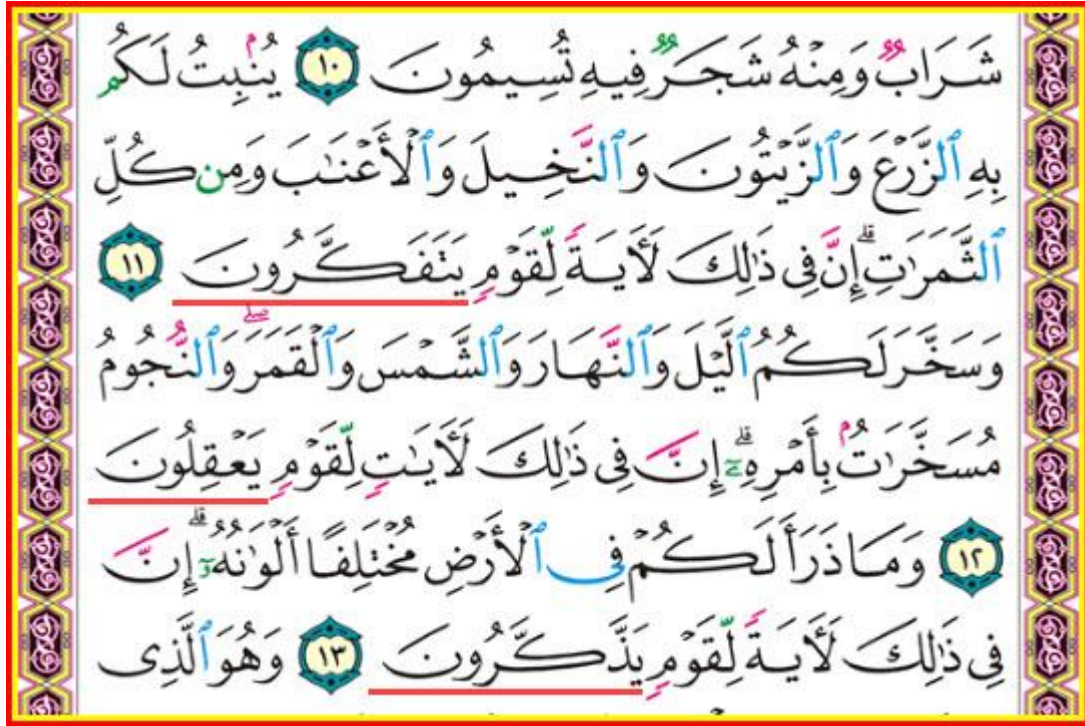 شَرَابٌ وَمِنْهُ شَجَرٌ فِيهِ تُسِيمُونَ ١٠ يُنۢبِتُ لَكُم
بِهِ ٱلزَّرْعَ وَٱلزَّيْتُونَ وَٱلنَّخِيلَ وَٱلْأَعْنَٰبَ وَمِن كُلِّ
ٱلثَّمَرَٰتِ ۗ إِنَّ فِى ذَٰلِكَ لَءَايَةً لِّقَوْمٍ يَتَفَكَّرُونَ ١١
وَسَخَّرَ لَكُمُ ٱلَّيْلَ وَٱلنَّهَارَ وَٱلشَّمْسَ وَٱلْقَمَرَ ۖ وَٱلنُّجُومُ
مُسَخَّرَٰتٌۢ بِأَمْرِهِۦٓ ۗ إِنَّ فِى ذَٰلِكَ لَءَايَٰتٍ لِّقَوْمٍ يَعْقِلُونَ
١٢ وَمَا ذَرَأَ لَكُمْ فِى ٱلْأَرْضِ مُخْتَلِفًا أَلْوَٰنُهُۥٓ ۗ إِنَّ
فِى ذَٰلِكَ لَءَايَةً لِّقَوْمٍ يَذَّكَّرُونَ ١٣ وَهُوَ ٱلَّذِى